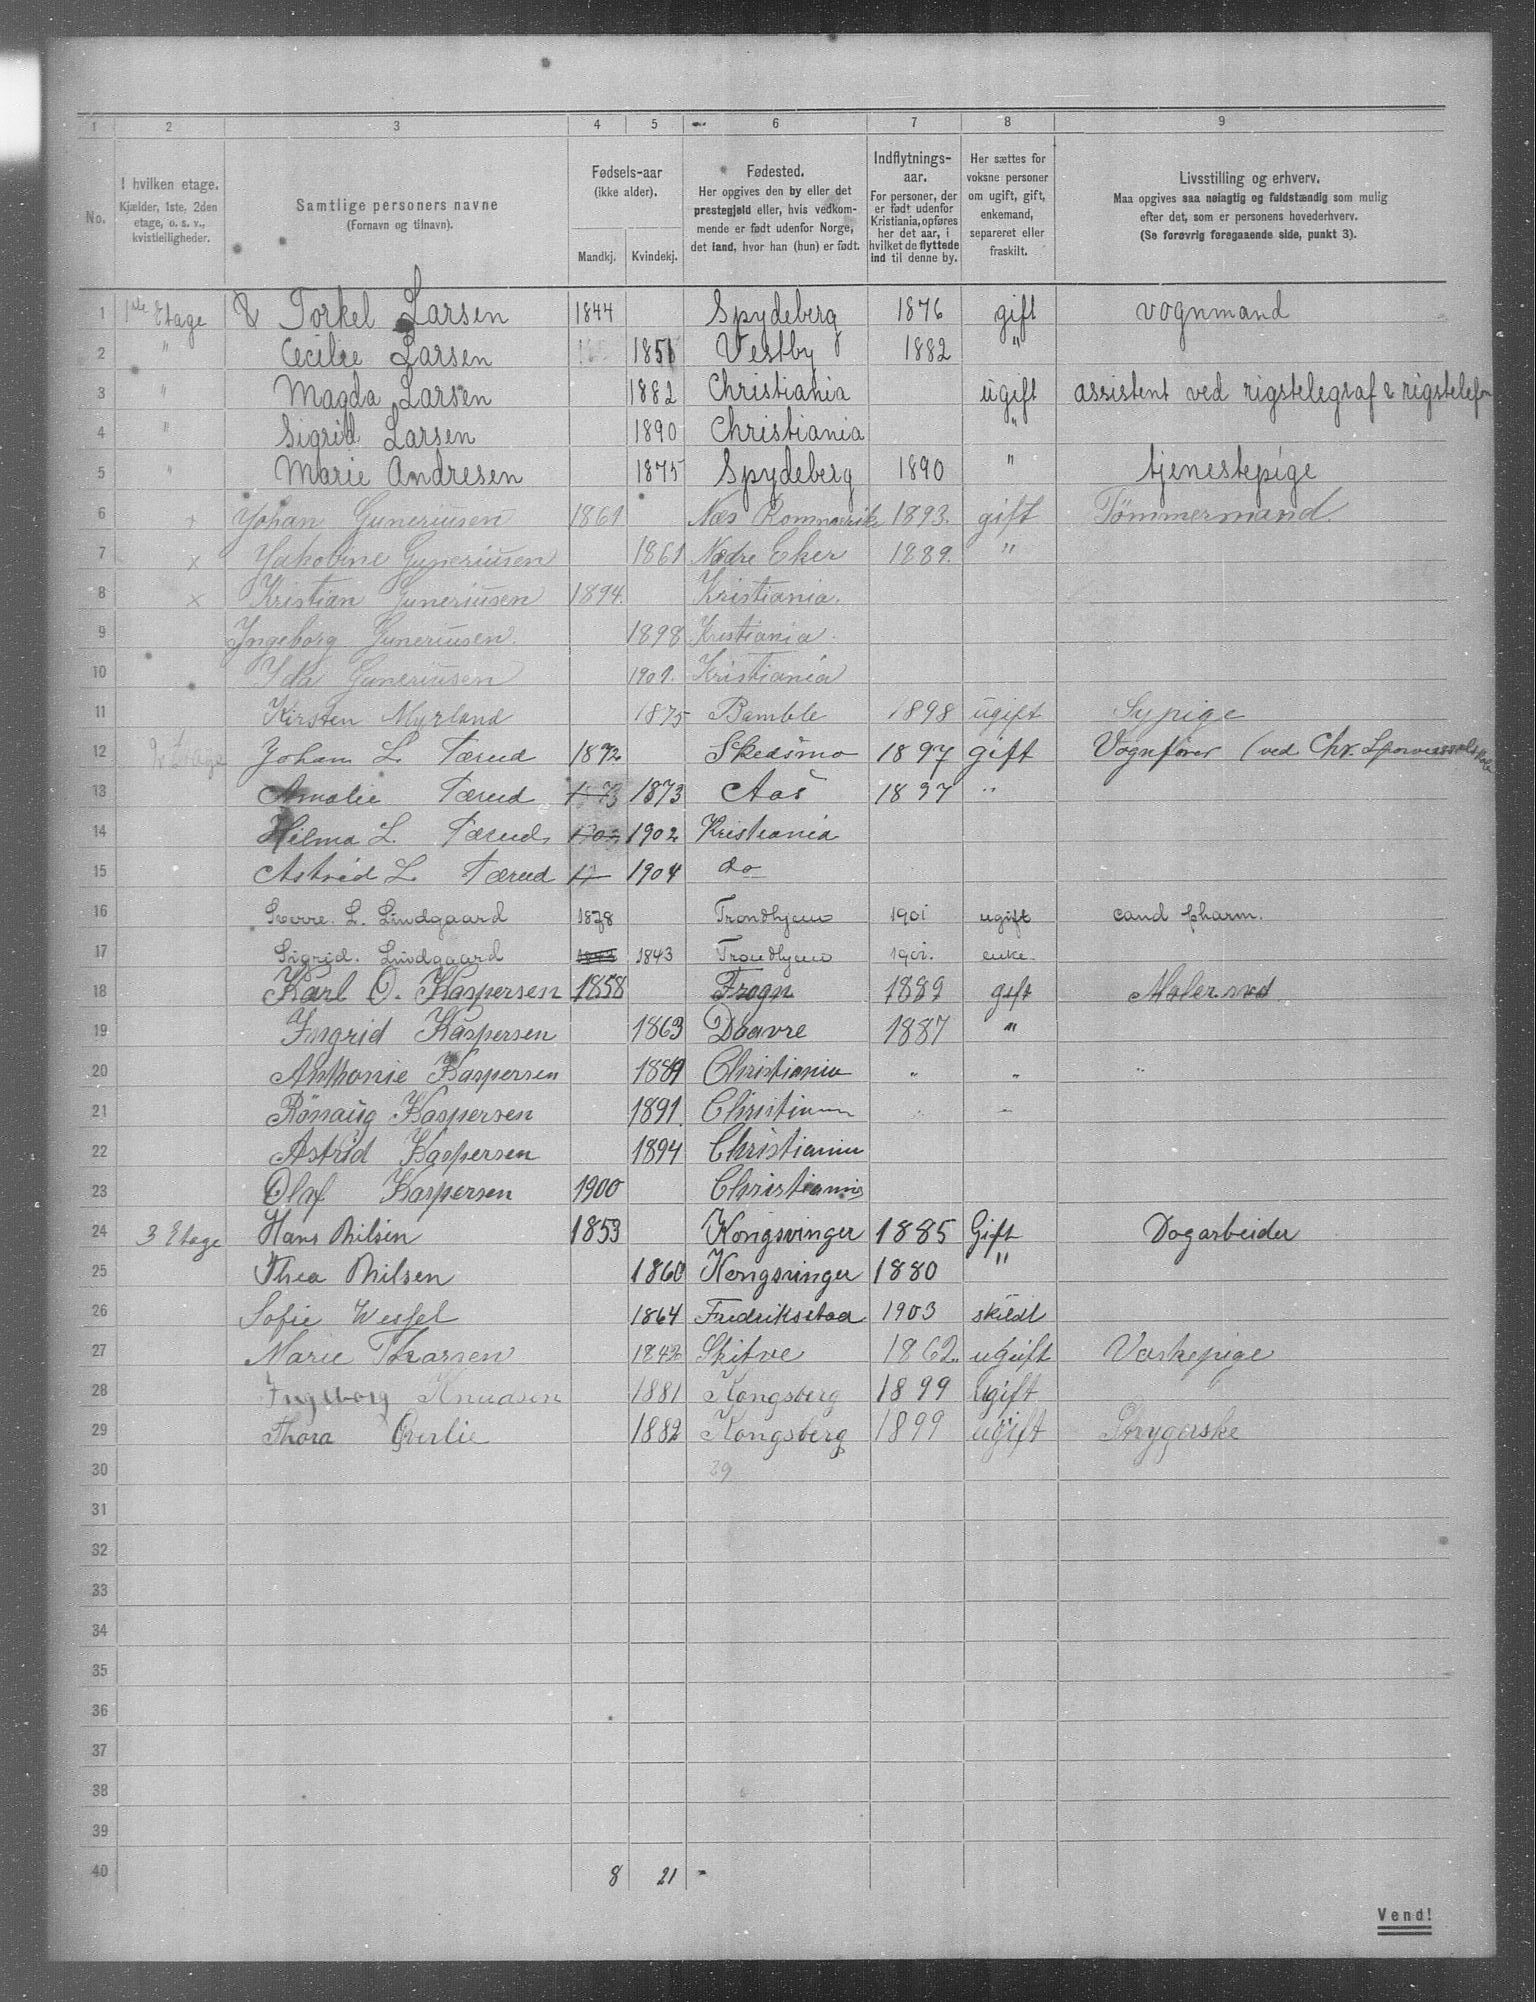 1 2 3 4 5 6 7 8 9
No.
I hvilken etage.
Kjælder, 1ste, 2den
etage, o. s. v.,
kvistleiligheder.
Samtlige personers navne
(Fornavn og tilnavn).
Fødsels-aar
(ikke alder).
Mandkj. Kvindekj.
Fødested.
Her opgives den by eller det
prestegjeld eller, hvis vedkom-
mende er født udenfor Norge,
det land, hvor han (hun) er født.
Indflytnings-
aar.
For personer, der
er født udenfor
Kristiania, opføres
her det aar, i
hvilket de flyttede
ind til denne by.
Her sættes for
voksne personer
om ugift, gift,
enkemand,
separeret eller
fraskilt.
Livsstilling og erhverv.
Maa opgives saa nøiagtig og fuldstændig som mulig
efter det, som er personens hovederhverv.
(Se forøvrig foregaaende side, punkt 3).
1 1ste Etage Torkel Larsen 1844 Spydeberg 1876 gift vognmand
2 " Cecilie Larsen 1851 Vestby 1882 "
3 " Magda Larsen 1882 Christiania ugift assistent ved rigstelegraf & rigstelefon
4 " Sigrid Larsen 1890 Christiania "
5 " Marie Andresen 1875 Spydeberg 1890 " tjenestepige
6 x Johan Guneriusen 1861 Næs Rommerike 1893. gift Tømmermand
7 x Jakobine Guneriusen 1861 Nedre Eker 1889. "
8 x Kristian Guneriusen 1894. Kristiania.
9 Ingeborg Guneriusen. 1898 Kristiania.
10 Ida Guneriusen 1901. Kristiania
11 Kirsten Myrland 1875 Bamble 1898 ugift Sypige
12 2 Etage Johan L. Tærud 1872 Skedsmo 1897 gift Vognfører (ved Chr.
13 Amalie Tærud 1873 1873 Aas 1897 "
14 Hilma L. Tærud 1902 1902 Kristiania
15 Astrid L. Tærud 19 1904 do
16 Sverre. L. Lindgaard 1878 Trondhjem 1901 ugift cand pharm.
17 Sigrid. Lindgaard 1843 1843 Trondhjem 1901. enke.
18 Karl O. Kaspersen 1858 Frogn 1889 gift Malersvd
19 Ingrid Kaspersen 1863 Daavre 1887 "
20 Anthonie Kaspersen 1889 Christiania " " "
21 Rönaug Kaspersen 1891. Christiania " "
22 Astrid Kaspersen 1894 Christiania
23 Olaf Kaspersen 1900 Christiania
24 3 Etage Hans Nilsen 1853 Kongsvinger 1885 Gift Dogarbeider
25 Thea Nilsen 1860 Kongsvinger 1880 "
26 Sofie Wessel 1864 Fredriksstad 1903 skildt
27 Marie Thoarsen 1842 Skitve 1862. ugift Vaskepige
28 Ingeborg Knudsen 1881 Kongsberg 1899 Ugift
29 Thora Querlie 1882 Kongsberg 1899 ugift Strygerske
30 29
31
32
33
34
35
36
37
38
39
40 8 21
Vend!